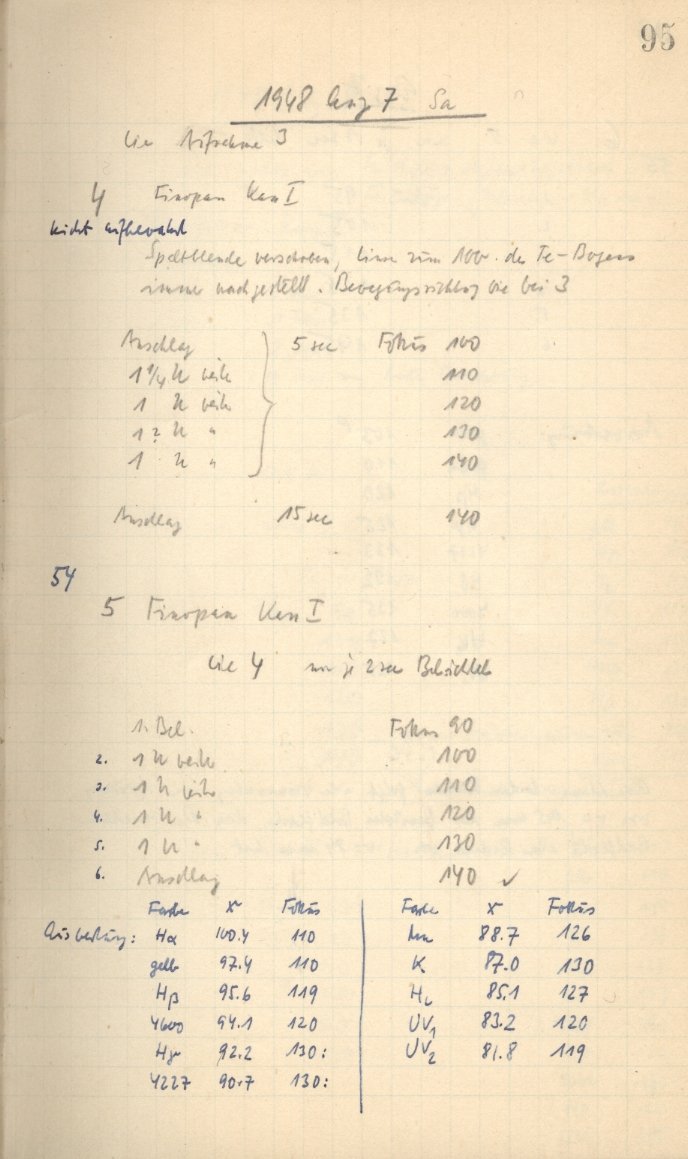 95
1948 Aug 7 Sa
Wie Aufnahme 3
4 Finopan Kass I
nicht aufbewahrt
Spaltblende verschoben, Linse zum 100v. des Fe-Bogens
immer nachgestellt. Bewegungsrichtung wie bei 3
Anschlag 5 sec Fokus 100
1 1/4 U weiter 110
1 U weiter 120
1? U " 130
1 U " 140
Anschlag 15 sec 140
54
5 Finopan Kass I
Wie 4 nur je 2 sec Belichtet
1. Bel. Fokus 90
2. 1 U weiter 100
3. 1 U weiter 110
4. 1 U " 120
5. 1 U " 130
6. Anschlag 140 ✓
Farbe X Fokus Farbe X Fokus
Ausbeutung: Hα 100.4 110 88.7 126
gelb 97.4 110 K 87.0 130
Hβ 95.6 119 85.1 127
4600 94.1 120 UV1 83.2 120
Hγ 92.2 130: UV2 81.8 119
4227 90.7 130: